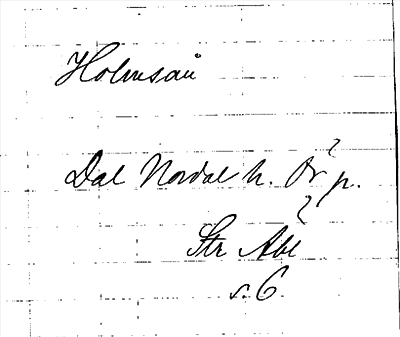 Holmsåü
Dal Nordal h. Ör p. ?
Str Abl ?
s. 6